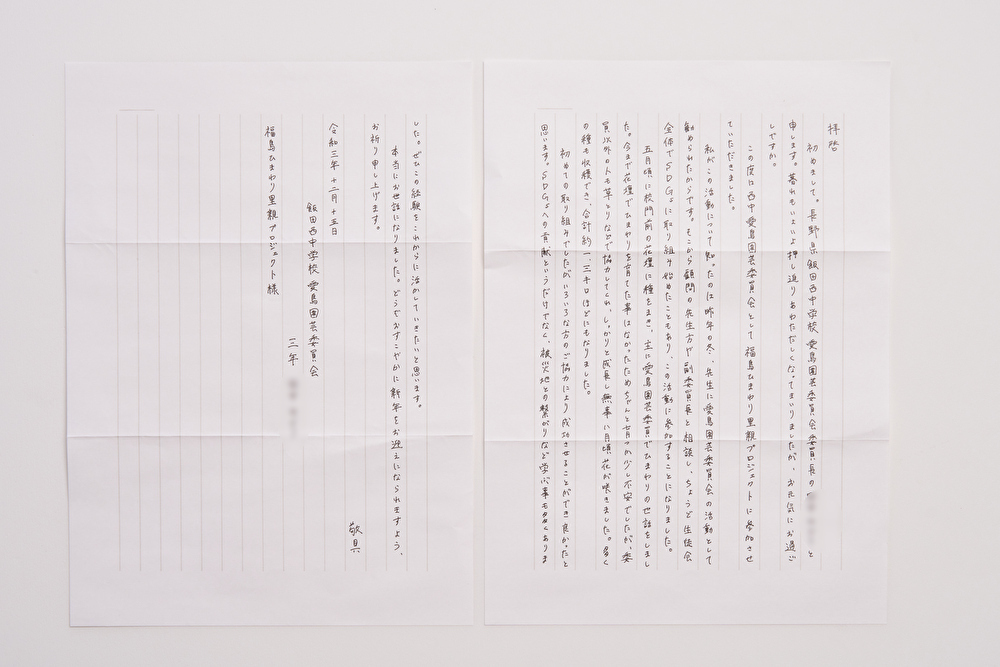 拝啓
初めまして。長野県飯田西中学校愛鳥園芸委員会委員長の と
申します。暮れもいよいよ押し迫りあわただしくなってまいりましたが、お元気にお過ご
しですか。
この度は西中愛鳥園芸委員会として福島ひまわり里親プロジェクトに参加させ
ていただきました。
私がこの活動について知ったのは昨年の冬、先生に愛鳥園芸委員会の活動として
勧められたからです。そこから顧問の先生方や副委員長と相談し、ちょうど生徒会
全体でSDGsに取り組み始めたこともあり、この活動に参加することになりました。
五月頃に校門前の花壇に種をまき、主に愛鳥園芸委員でひまわりの世話をしまし
た。今まで花壇でひまわりを育てた事はなかったためちゃんと育つか少し不安でしたが、委
員以外の人も草とりなどで協力してくれ、しっかりと成長し無事八月頃花が咲きました。多く
の種も収穫でき、合計約一、三キロほどにもなりました。
初めての取り組みでしたがいろいろな方のご協力により成功させることができ良かったと
思います。SDGsへの貢献というだけでなく、被災地との繋がりなど学ぶ事も多くありま
した。ぜひこの経験をこれからに活かしていきたいと思います。
本当にお世話になりました。どうぞおすこやかに新年をお迎えになられますよう、
お祈り申し上げます。
敬具
令和三年十二月十五日
飯田西中学校 愛鳥園芸委員会
三年
福島ひまわり里親プロジェクト様